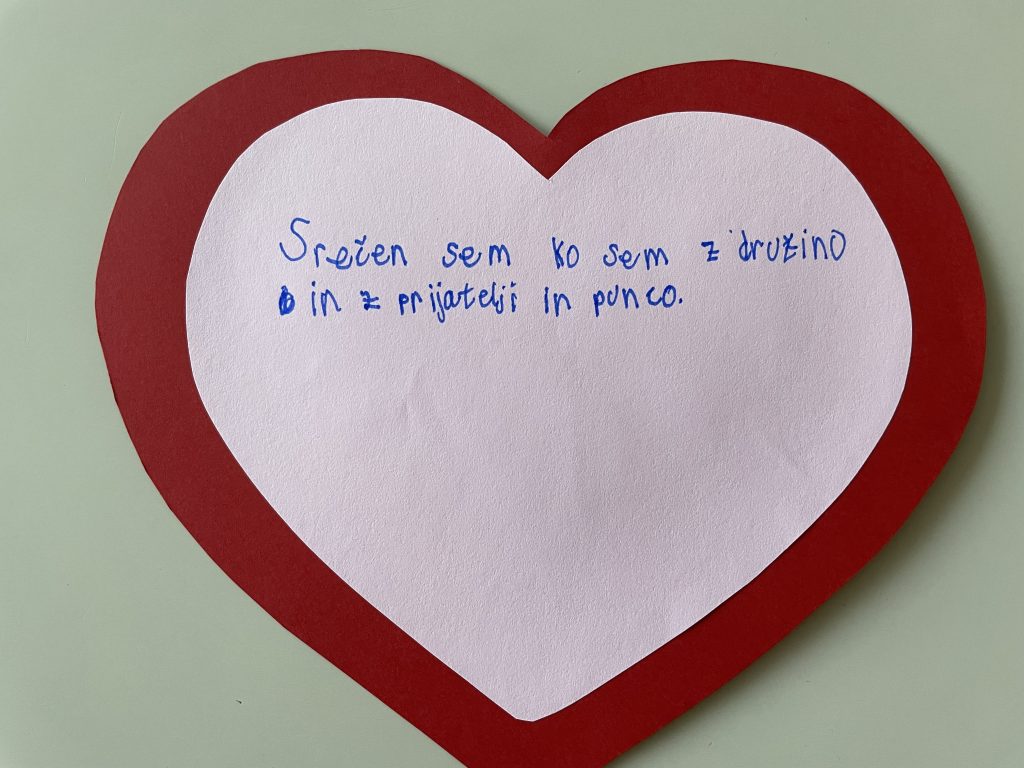 Srečen sem ko sem z družino
in z prijatelji in punco.